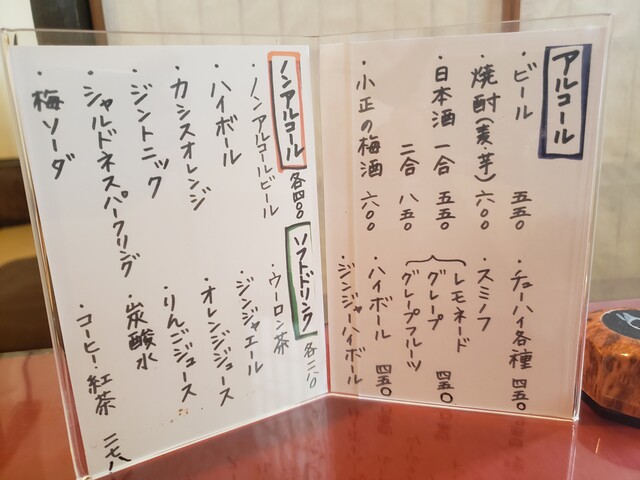 アルコール
・ビール 五五〇
・焼酎(麦・芋) 六〇〇
・日本酒 一合 五五〇
二合 八五〇
・小正の梅酒 六〇〇
・チューハイ各種 四五〇
・スミノフ
レモネード
グレープ 四五〇
グレープフルーツ
・ハイボール 四五〇
・ジンジャーハイボール
ノンアルコール 各四〇〇
・ノンアルコールビール
・ハイボール
・カシスオレンジ
・ジントニック
・シャルドネスパークリング
・梅ソーダ
ソフトドリンク 各二八〇
・ウーロン茶
・ジンジャエール
・オレンジジュース
・りんごジュース
・炭酸水
・コーヒー・紅茶